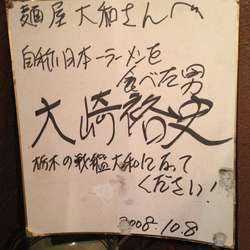 麺屋大和さんへ
自称日本一ラーメンを
食べた男
大崎裕史
栃木の戦艦大和になって
ください!
2008.10.8